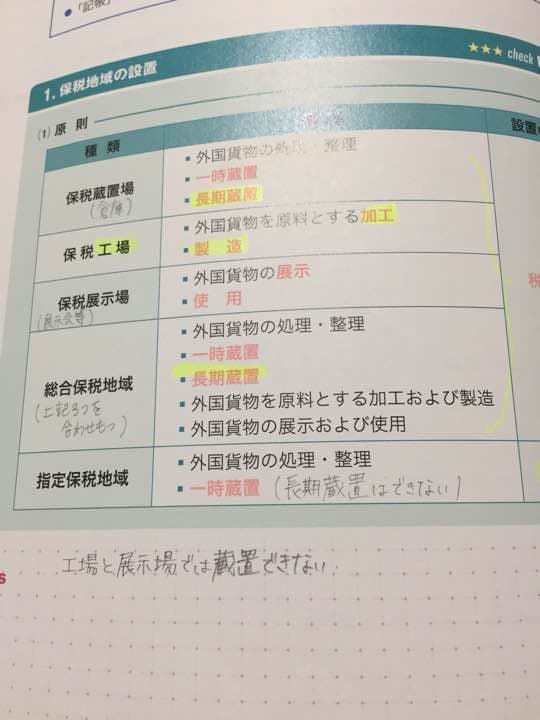 「記帳」
1. 保税地域の設置
★★★ check
(1) 原 則
種 類
設置
保税蔵置場
(倉庫)
▪ 外国貨物の処理・整理
▪ 一時蔵置
▪ 長期蔵置
保 税 工 場
▪ 外国貨物を原料とする加工
▪ 製 造
保税展示場
(展示会等)
▪ 外国貨物の展示
▪ 使 用
税
総合保税地域
(上記3つを
合わせもつ)
▪ 外国貨物の処理・整理
▪ 一時蔵置
▪ 長期蔵置
▪ 外国貨物を原料とする加工および製造
▪ 外国貨物の展示および使用
指定保税地域
▪ 外国貨物の処理・整理
▪ 一時蔵置 (長期蔵置はできない)
s
工場と展示場では蔵置できない.